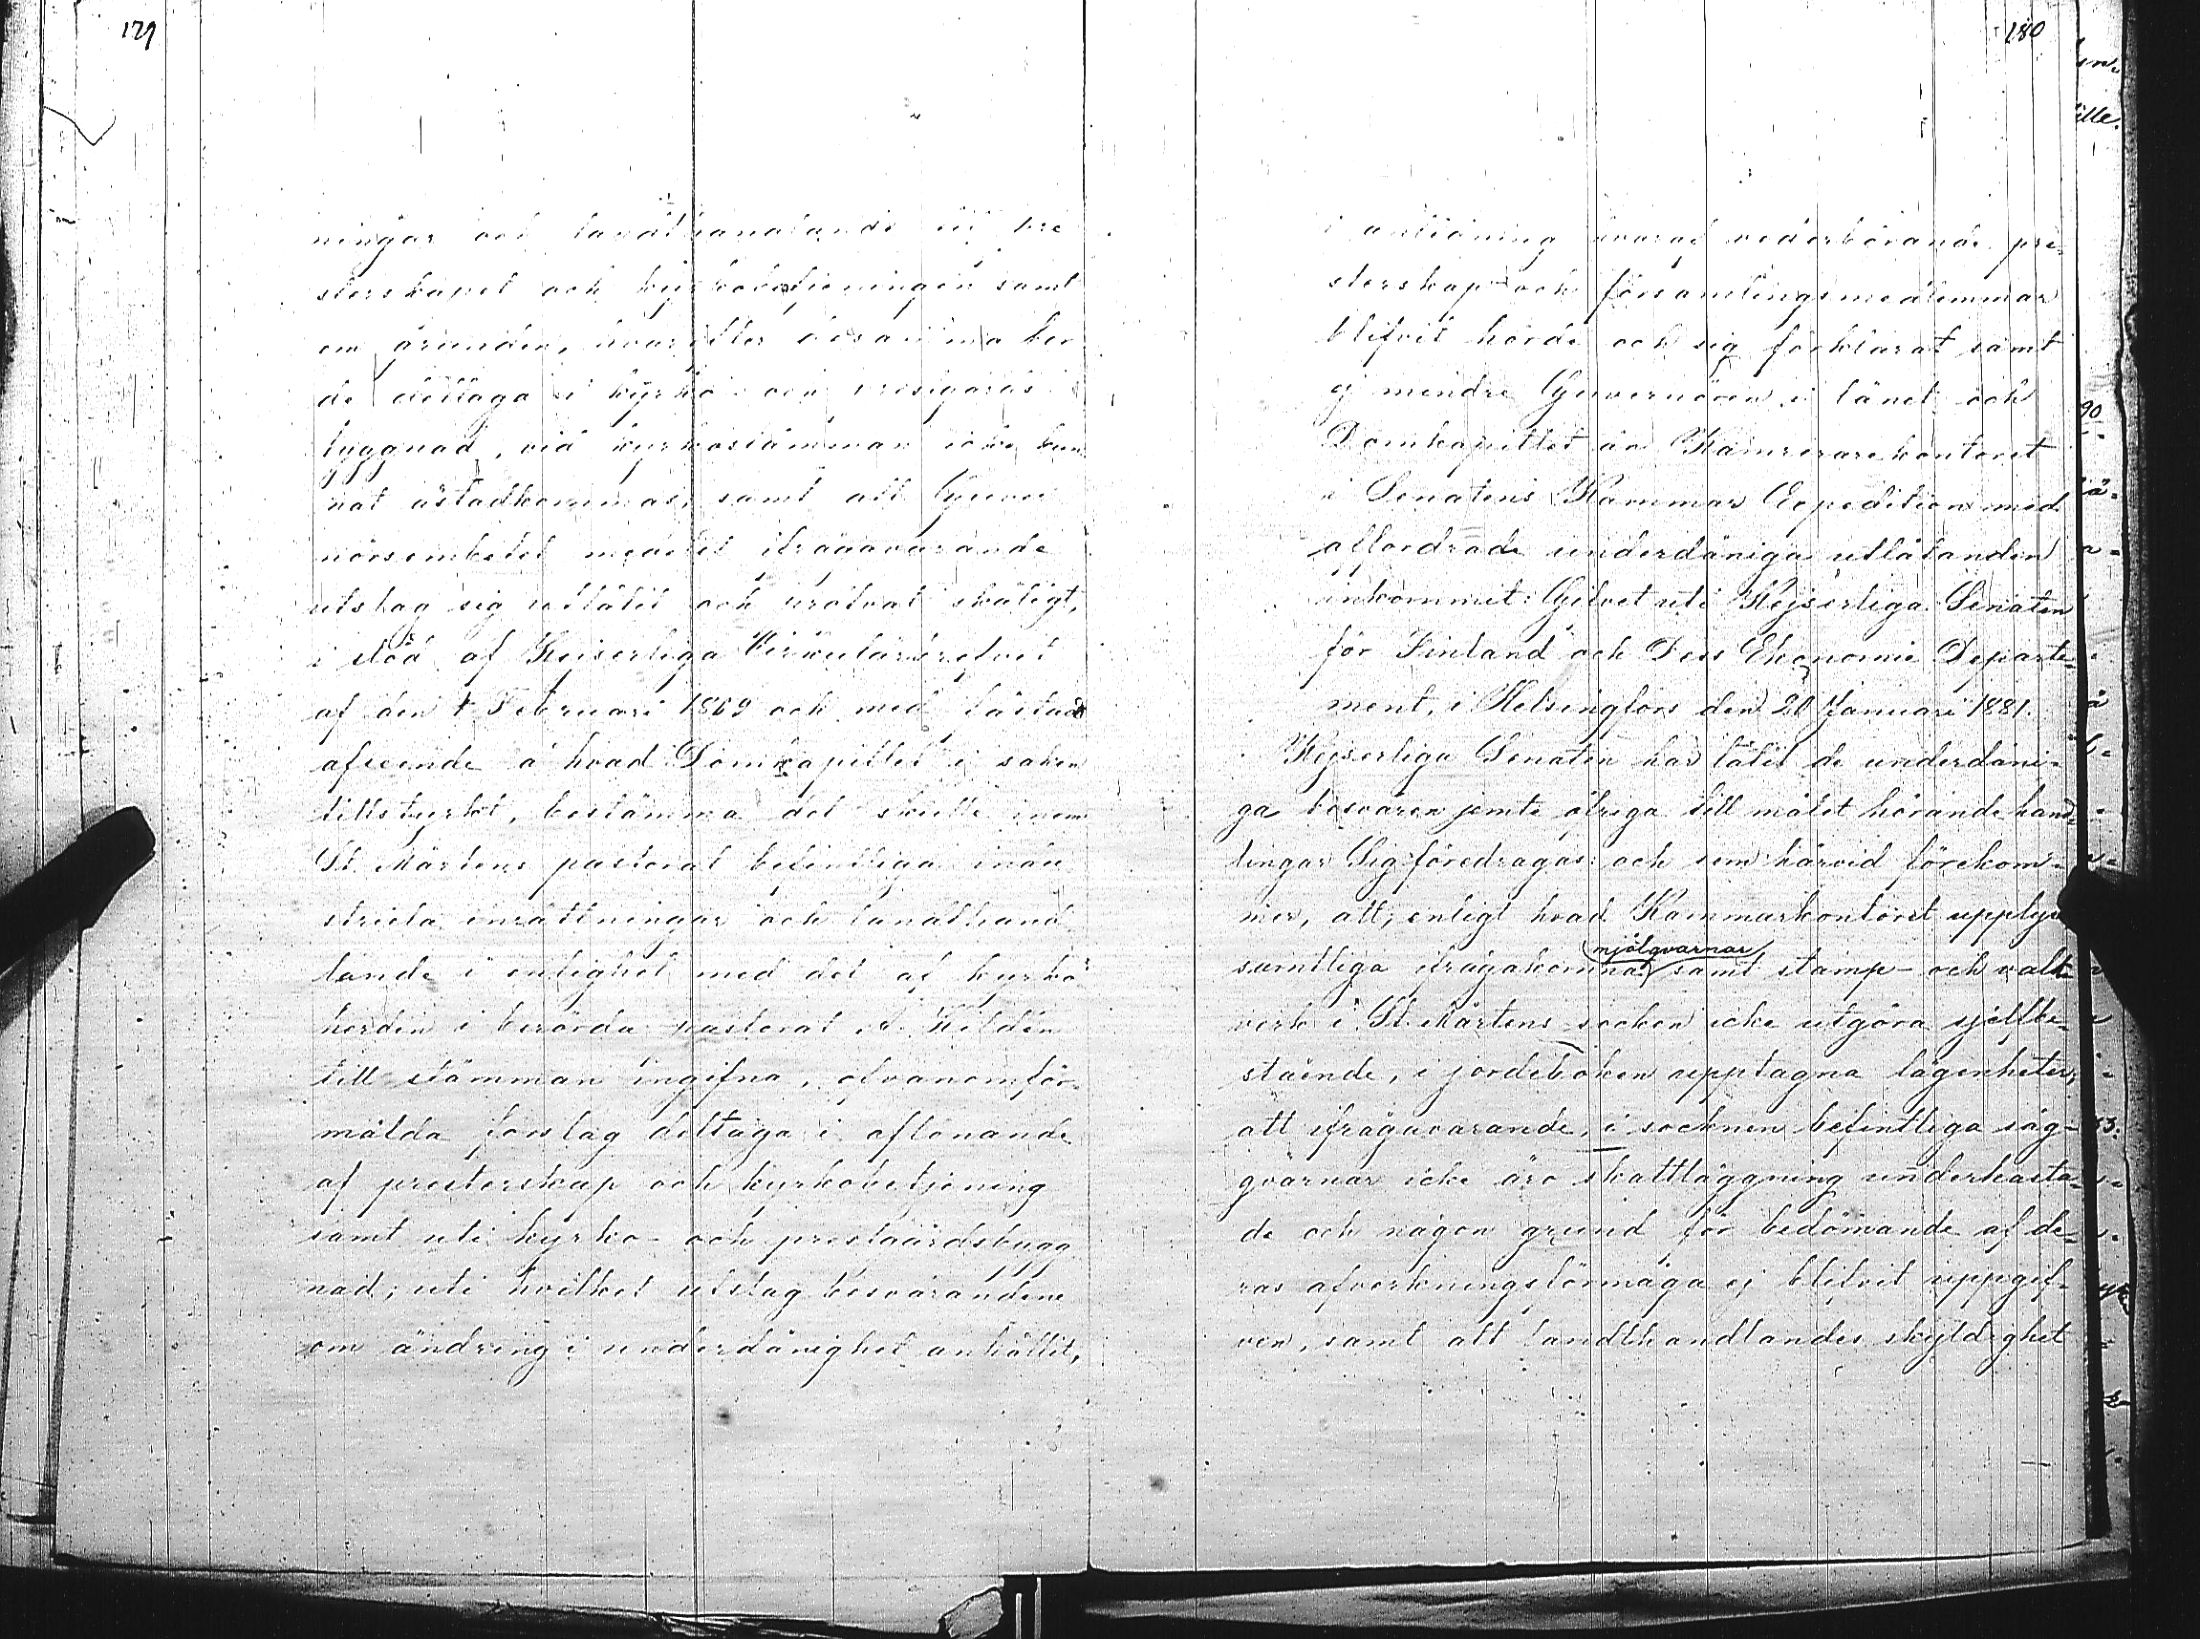 179
ningar och landthandlande till pre
sterskapet och kyrkobetjeningen samt
om grunden, hvarefter desamma bor
de deltaga i kyrko- och prestgårds
byggnad, vid kyrkostämman icke kun
nat åstadkommas; samt att Guver
nörsembetet medelst ifrågavarande
utslag sig utlåtit och pröfvat skäligt,
i stöd af Kejserliga Cirkulärbrefvet
af den 4 Februari 1869 och med fästadt
afseende å hvad Domkapitlet i saken
tillstyrkt, bestämma det skulle inom
St. Mårtens pastorat befintliga indu
striela inrättningar och landthand
lande i enlighet med det af kyrko
herden i berörda pastorat A. Kildén
till stämman ingifna, ofvanomför-
mälda förslag deltaga i aflönande
af presterskap och kyrkobetjening
samt uti kyrko- och prestgårdsbygg
nad; uti hvilket utslag besvärandene
om ändring i underdånighet anhållit,
180
i anledning hvaraf vederbörande pre-
sterskap och församlingsmedlemmar
blifvit hörde och sig förklarat samt
ej mindre Guvernören i länet och
Domkapitlet än Kamrerarekontoret
i Senatens Kammar Expedition med
affordrade underdåniga utlåtanden
inkommit: Gifvet uti Kejserliga Senaten
för Finland och Dess Ekonomie Departe-
ment, i Helsingfors den 20 Januari 1881.
Kejserliga Senaten har låtit de underdåni-
ga besvären jemte öfriga till målet hörande hand-
lingar Sig föredragas: och som härvid förekom-
mer, att, enligt hvad Kammarkontoret upplyst
mjölqvarnar
samtliga ifrågakomna samt stamp- och valk
verk i St. Mårtens socken icke utgöra sjelfbe-
stående, i jordeboken upptagna lägenheter,
att ifrågavarande, i socknen befintliga såg-
qvarnar icke äro skattläggning underkasta-
de och någon grund för bedömande af de-
ras afverkningsförmåga ej blifvit uppgif-
ven, samt att landthandlandes skyldighet